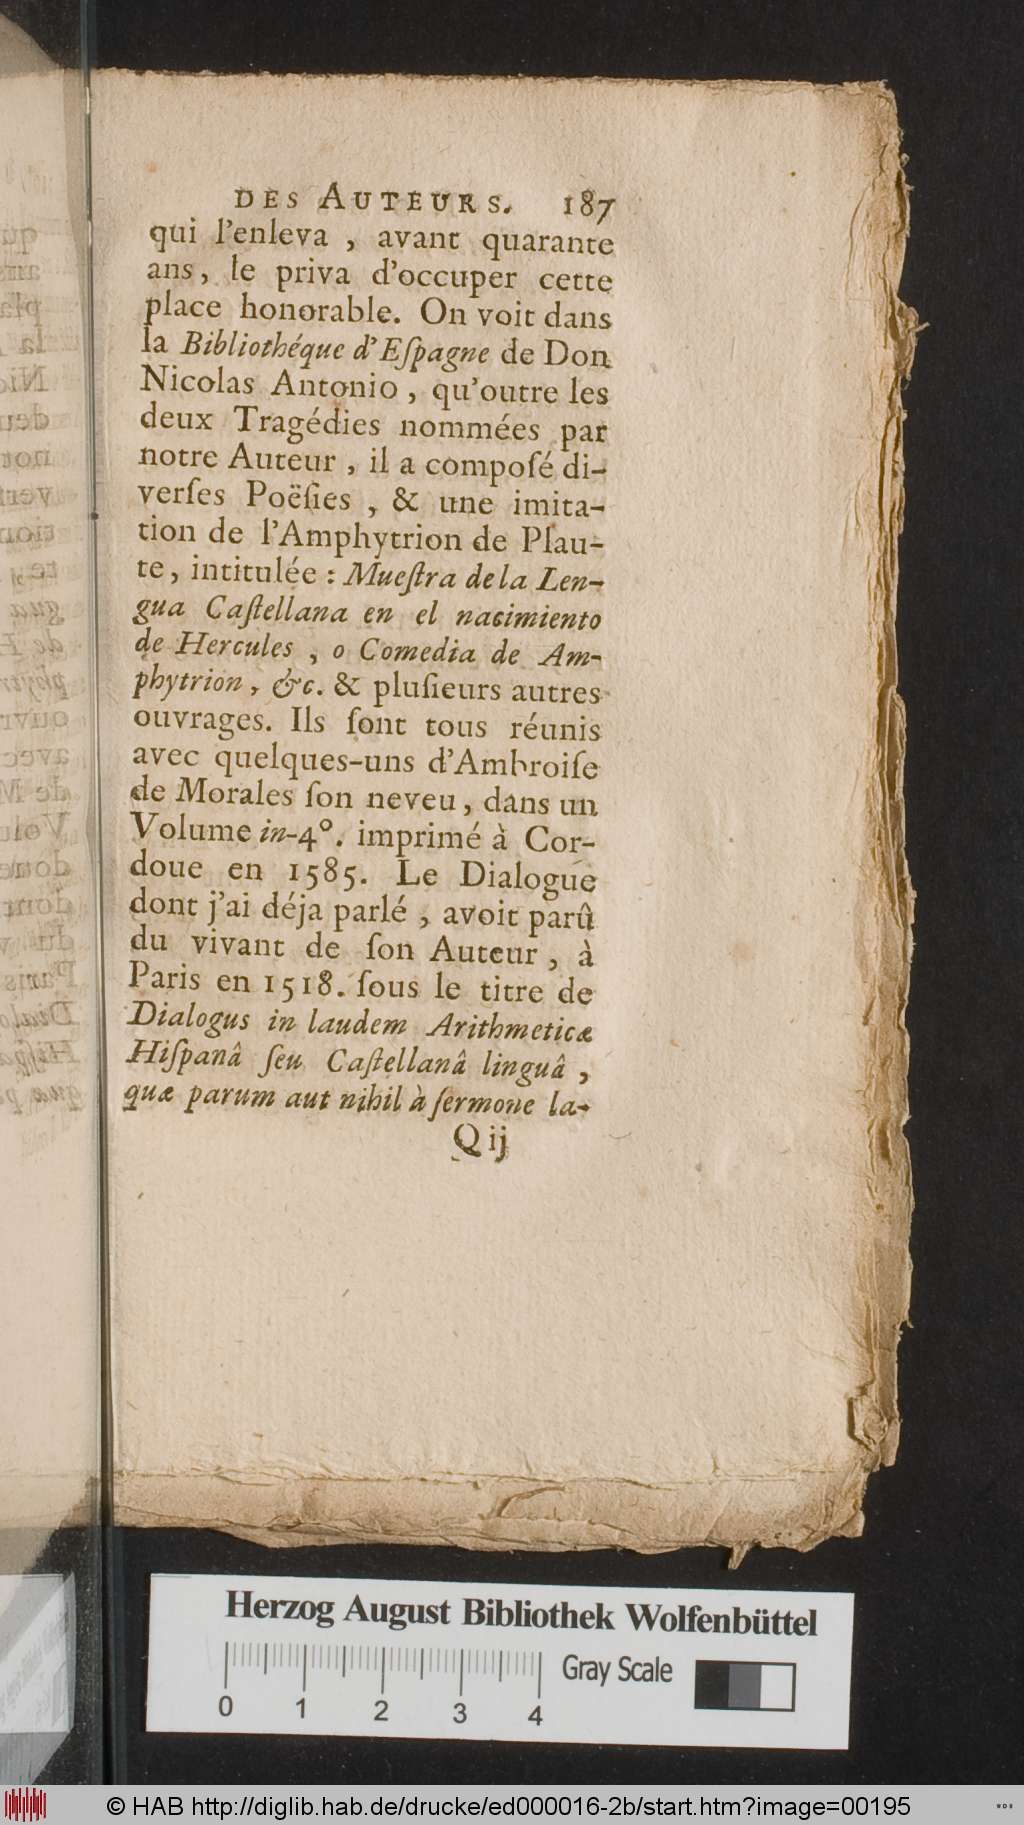 DES AUTEURS. 187
qui l'enleva , avant quarante
ans, le priva d'occuper cette
place honorable. On voit dans
la Bibliothéque d'Eſpagne de Don
Nicolas Antonio , qu'outre les
deux Tragédies nommées par
notre Auteur , il a compoſé di-
verſes Poëſies , & une imita-
tion de l'Amphytrion de Plau-
te, intitulée : Mueſtra de la Len-
gua Caſtellana en el nacimiento
de Hercules , o Comedia de Am-
phytrion, &c. & pluſieurs autres
ouvrages. Ils ſont tous réunis
avec quelques-uns d'Ambroiſe
de Morales ſon neveu, dans un
Volume in-4°. imprimé à Cor-
doue en 1585. Le Dialogue
dont j'ai déja parlé , avoit parû
du vivant de ſon Auteur , à
Paris en 1518. ſous le titre de
Dialogus in laudem Arithmeticæ
Hiſpanâ ſeu Caſtellanâ linguâ ,
quæ parum aut nihil à ſermone la-
Q ij
Herzog August Bibliothek Wolfenbüttel
0 1 2 3 4 Gray Scale
© HAB http://diglib.hab.de/drucke/ed000016-2b/start.htm?image=00195